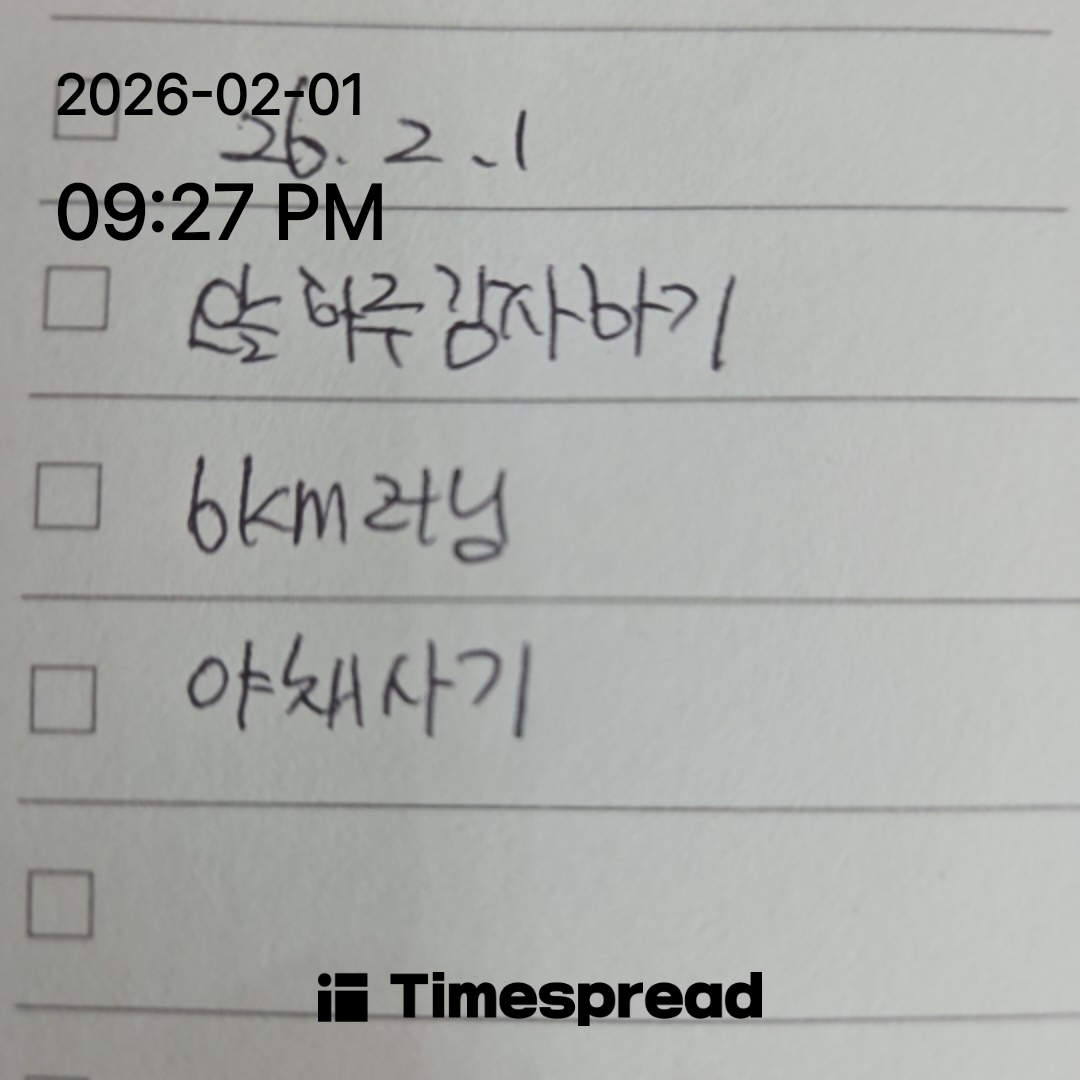 2026-02-01
26. 2. 1
09:27 PM
하루감자하기
6km 러닝
야채사기
Timespread